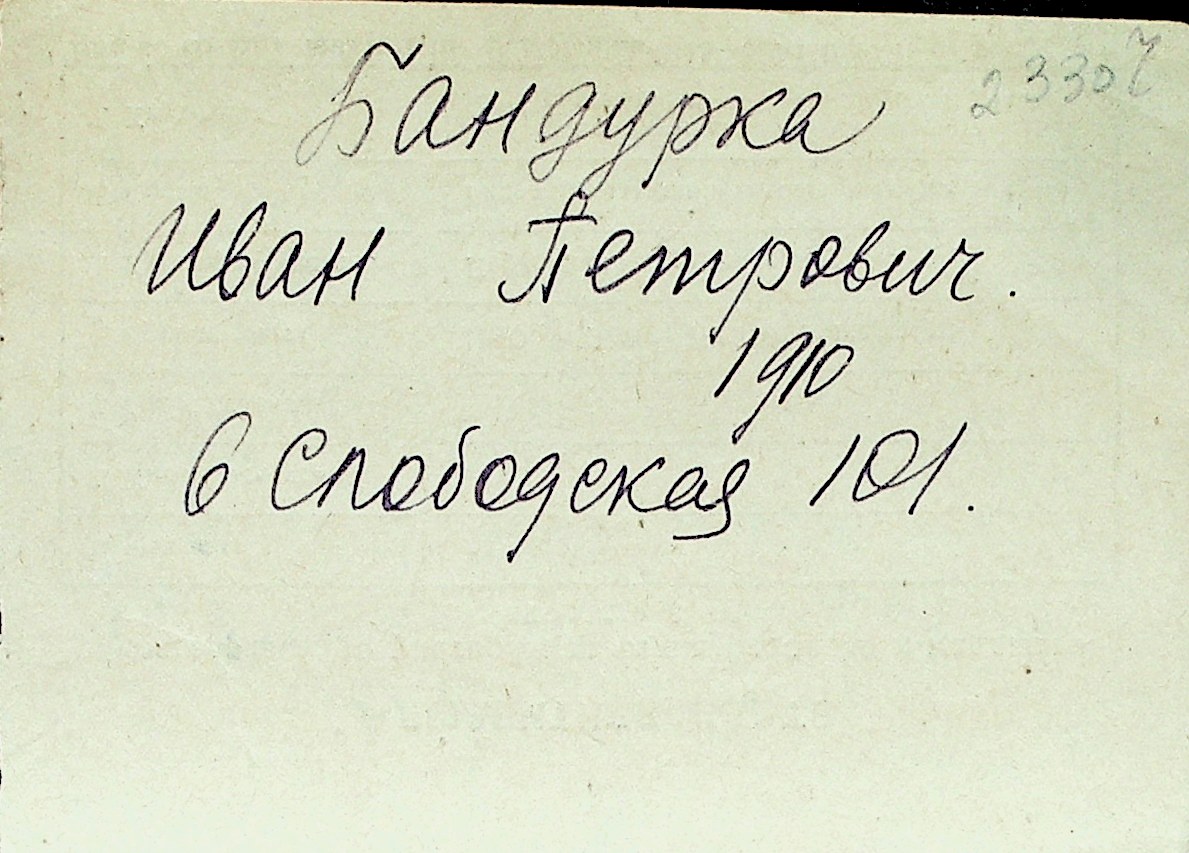 23307
Бандурка
Иван Петрович.
1910
6 Слободская 101.